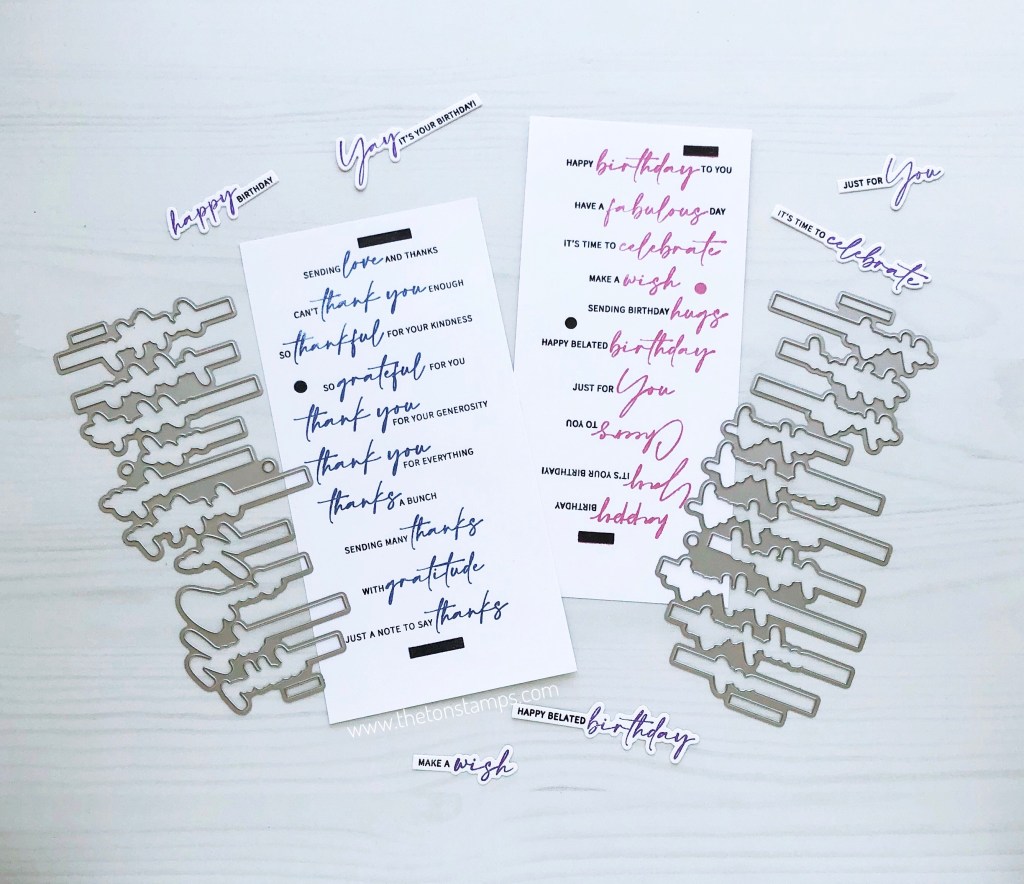 Yay IT'S YOUR BIRTHDAY!
happy BIRTHDAY
JUST FOR You
IT'S TIME TO celebrate
SENDING love AND THANKS
CAN'T thank you ENOUGH
SO thankful FOR YOUR KINDNESS
SO grateful FOR YOU
thank you FOR YOUR GENEROSITY
thank you FOR EVERYTHING
thanks A BUNCH
SENDING MANY thanks
WITH gratitude
JUST A NOTE TO SAY thanks
HAPPY birthday TO YOU
HAVE A fabulous DAY
IT'S TIME TO celebrate
MAKE A wish
SENDING BIRTHDAY hugs
HAPPY BELATED birthday
JUST FOR You
Cheers TO YOU
Yay IT'S YOUR BIRTHDAY!
happy BIRTHDAY
www.thetonstamps.com
HAPPY BELATED birthday
MAKE A wish